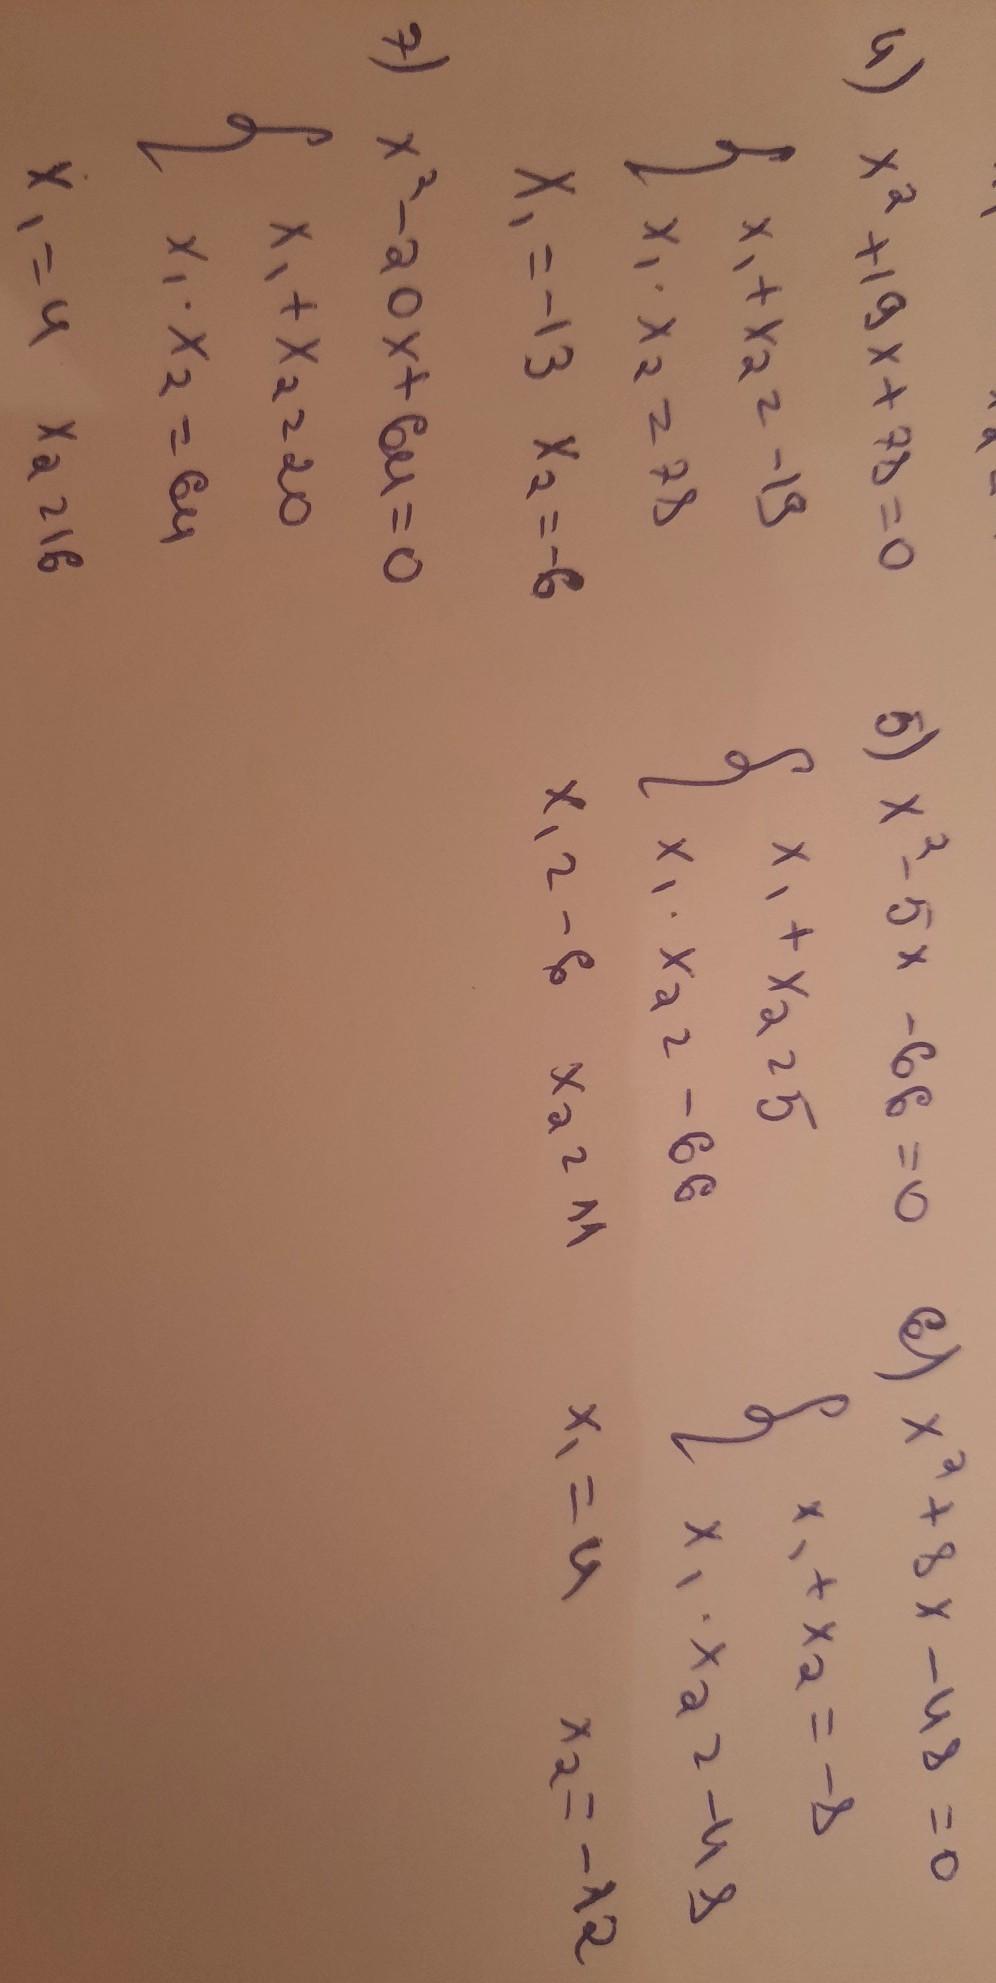 4) x² + 19x + 78 = 0
{ x₁ + x₂ = -19
x₁ · x₂ = 78
x₁ = -13 x₂ = -6
5) x² - 5x - 66 = 0
{ x₁ + x₂ = 5
x₁ · x₂ = -66
x₁ = -6 x₂ = 11
6) x² + 8x - 48 = 0
{ x₁ + x₂ = -8
x₁ · x₂ = -48
x₁ = 4 x₂ = -12
7) x² - 20x + 64 = 0
{ x₁ + x₂ = 20
x₁ · x₂ = 64
x₁ = 4 x₂ = 16